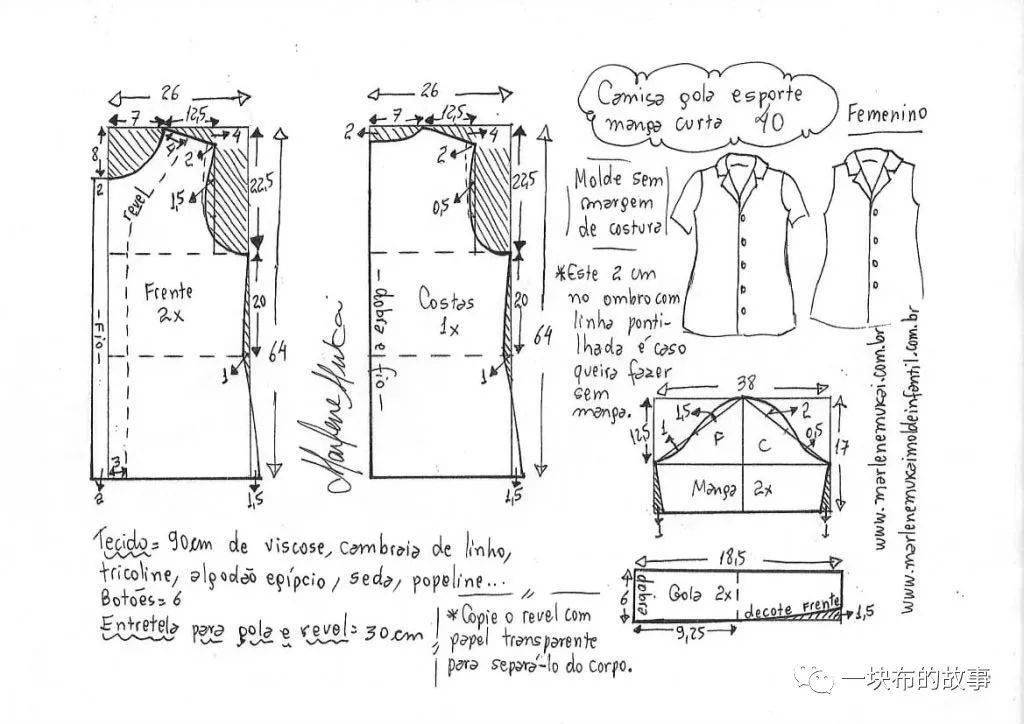 26
7
12,5
4
8
2
4
2
1,5
revel
22,5
Frente
2x
20
64
- Fio -
1
3
2
1,5
26
7
12,5
4
2
2
0,5
22,5
Costas
1x
- dobra e fio -
20
64
1
1,5
Marlene Mukai
Camisa gola esporte
manga curta 40
Femenino
Molde sem
margem
de costura
*Este 2 cm
no ombro com
linha ponti-
lhada é caso
queira fazer
sem
manga.
38
1,5
2
12,5
1
F
C
0,5
17
Manga 2x
1
1
www.marlenemukai.com.br
www.marlenemukaimoldeinfantil.com.br
18,5
6
dobra
Gola 2x
decote Frente
1,5
9,25
Tecido = 90cm de viscose, cambraia de linho,
tricoline, algodão egípcio, seda, popeline...
Botões = 6
Entretela para gola e revel = 30cm
*Copie o revel com
papel transparente
para separá-lo do corpo.
一块布的故事